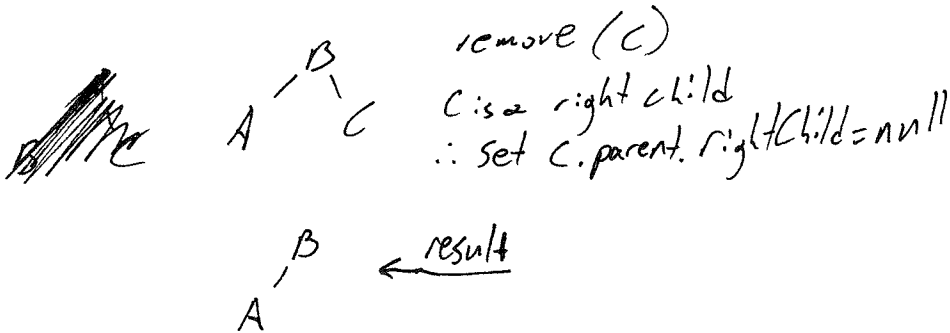 remove (C)
B
A C
C is a right child
∴ set C.parent.rightChild = null
B
result
A